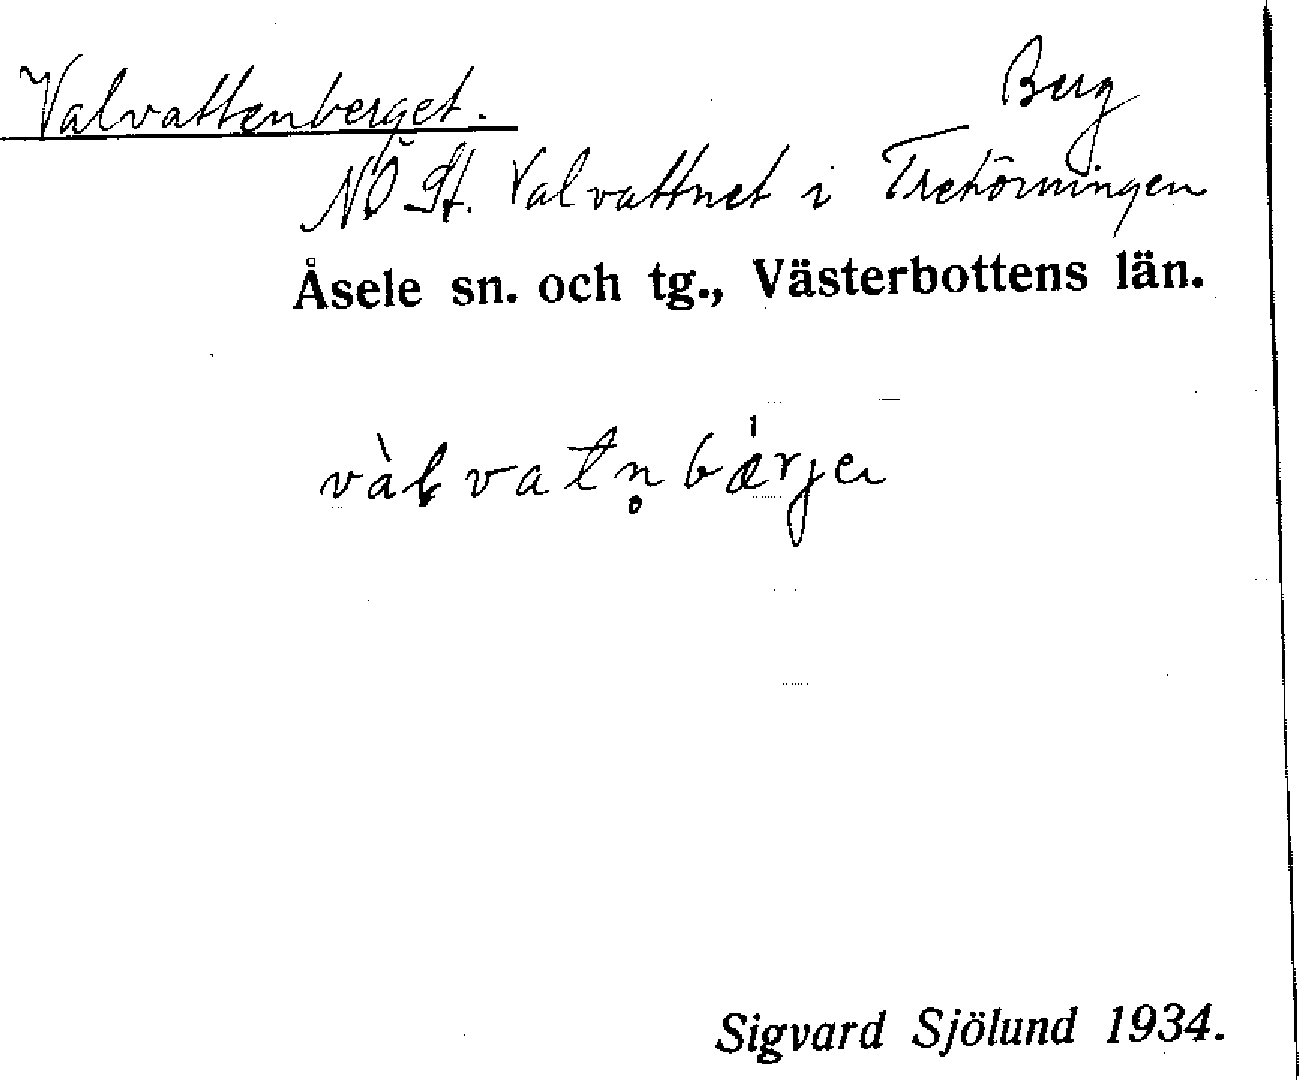 Valvattenberget.
Berg
NÖ St. Valvattnet i Trehörningen
Åsele sn. och tg., Västerbottens län.
vàlvatn̥bárjeṇ
Sigvard Sjölund 1934.